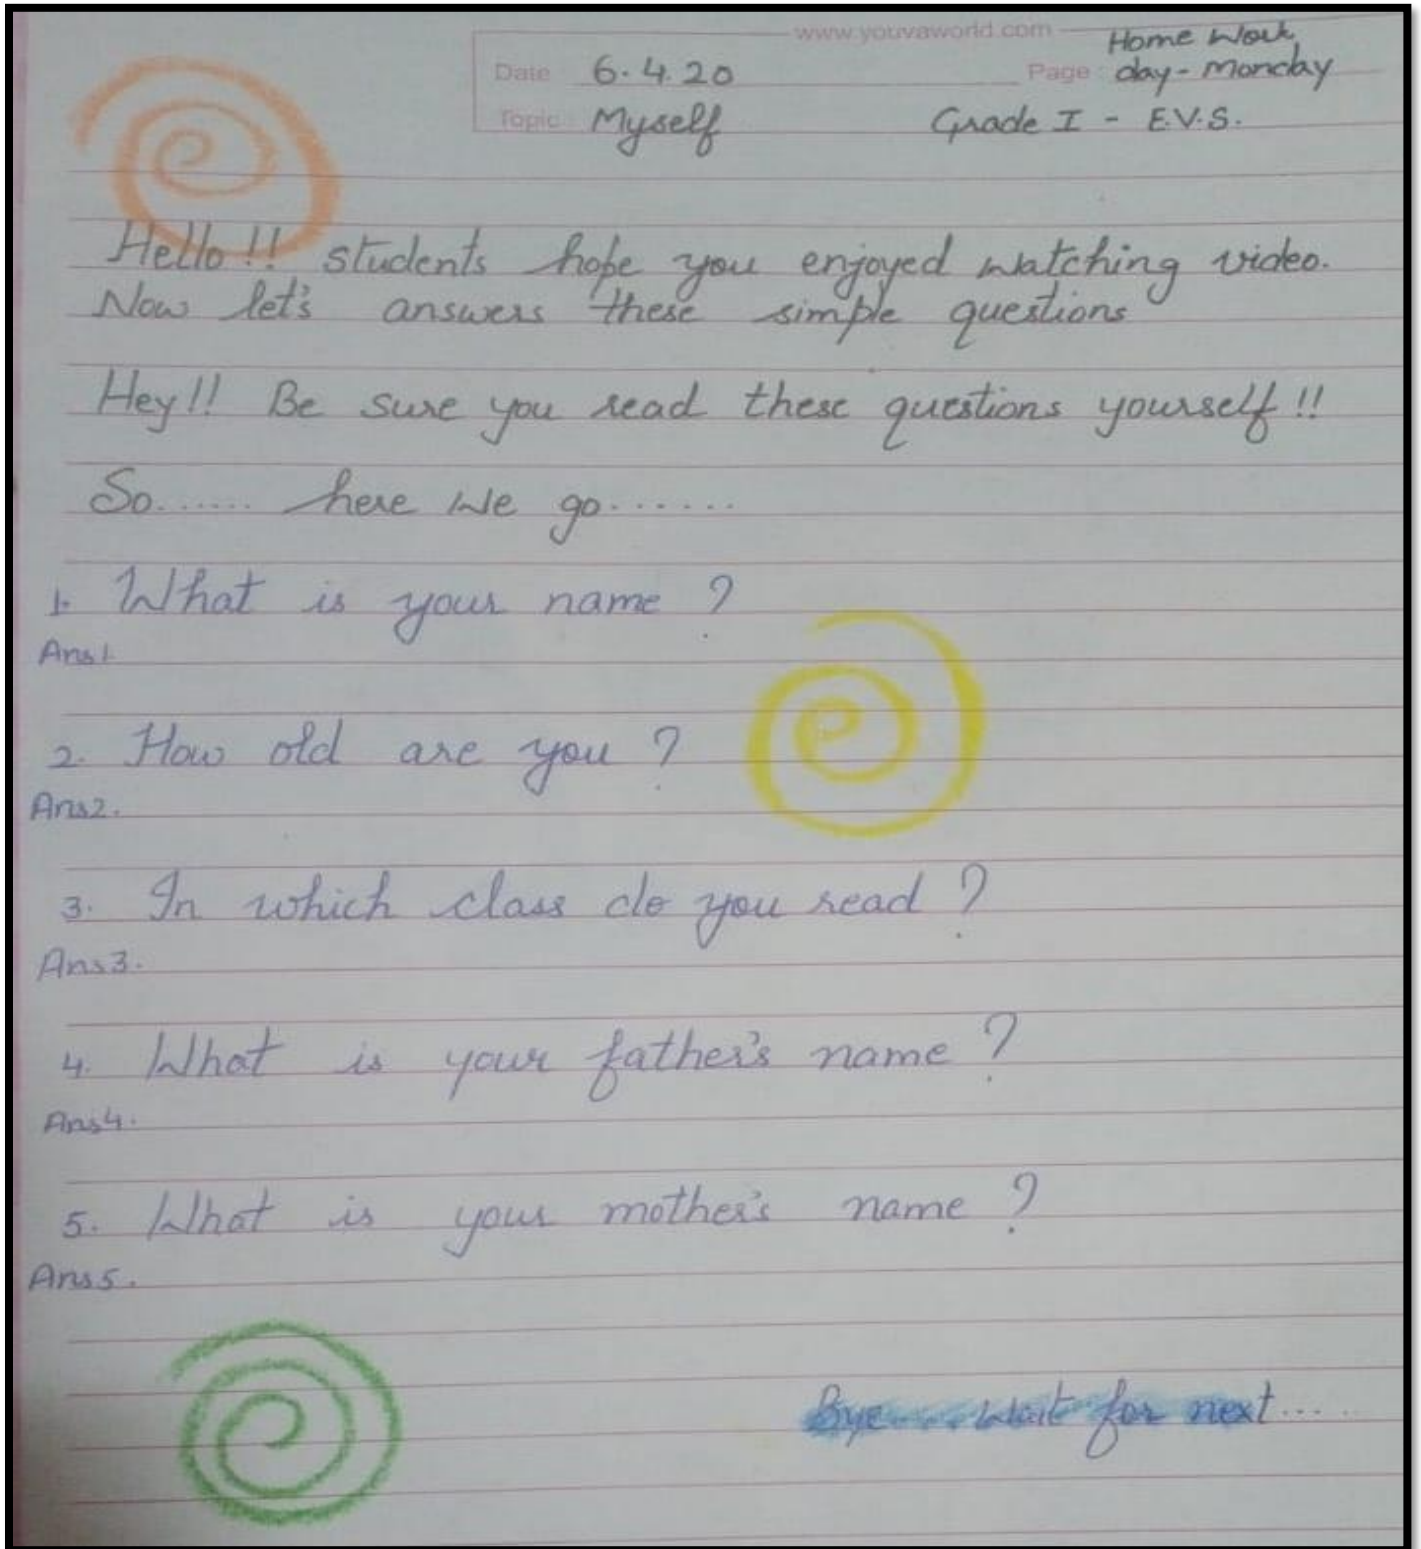 www.youvaworld.com
Home Work
Date 6.4.20 Page day - Monday
Topic Myself Grade I - E.V.S.
Hello!! students hope you enjoyed watching video.
Now let's answers these simple questions
Hey!! Be sure you read these questions yourself!!
So...... here we go.......
1. What is your name ?
Ans1.
2. How old are you ?
Ans2.
3. In which class do you read ?
Ans3.
4. What is your father's name ?
Ans4.
5. What is your mother's name ?
Ans5.
Bye.... wait for next.....